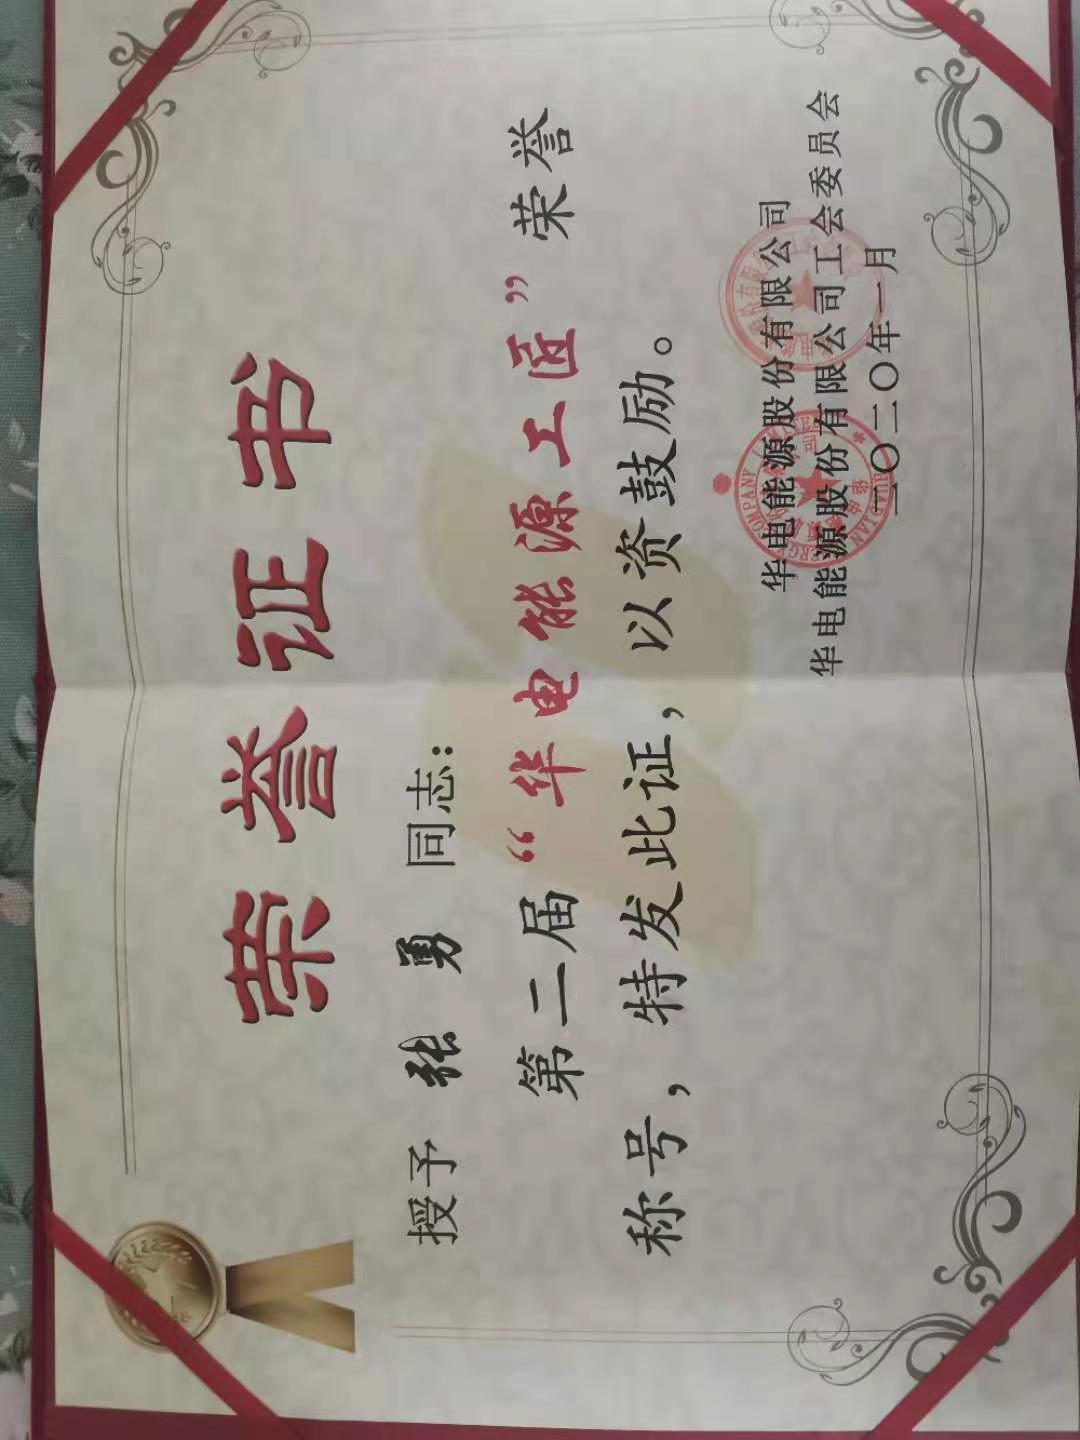 荣誉证书
授予 张勇 同志：
第二届“华电能源工匠”荣誉
称号，特发此证，以资鼓励。
华电能源股份有限公司
华电能源股份有限公司工会委员会
二〇二〇年一月